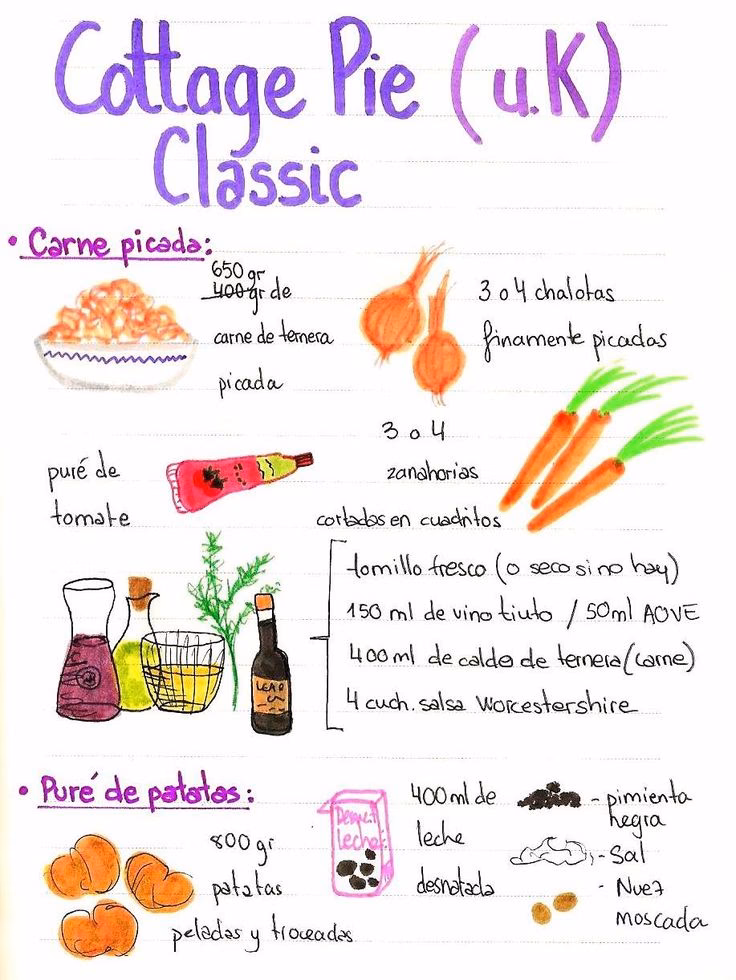 Cottage Pie (U.K)
Classic
• Carne picada:
650 gr
400 gr de
carne de ternera
picada
3 o 4 chalotas
finamente picadas
puré de
tomate
3 o 4
zanahorias
cortadas en cuadritos
tomillo fresco (o seco si no hay)
150 ml de vino tinto / 50ml AOVE
400 ml de caldo de ternera (carne)
4 cuch. salsa Worcestershire
LEA
• Puré de patatas:
800 gr
patatas
peladas y troceadas
leche
400 ml de
leche
desnatada
- pimienta
negra
- Sal
- Nuez
moscada